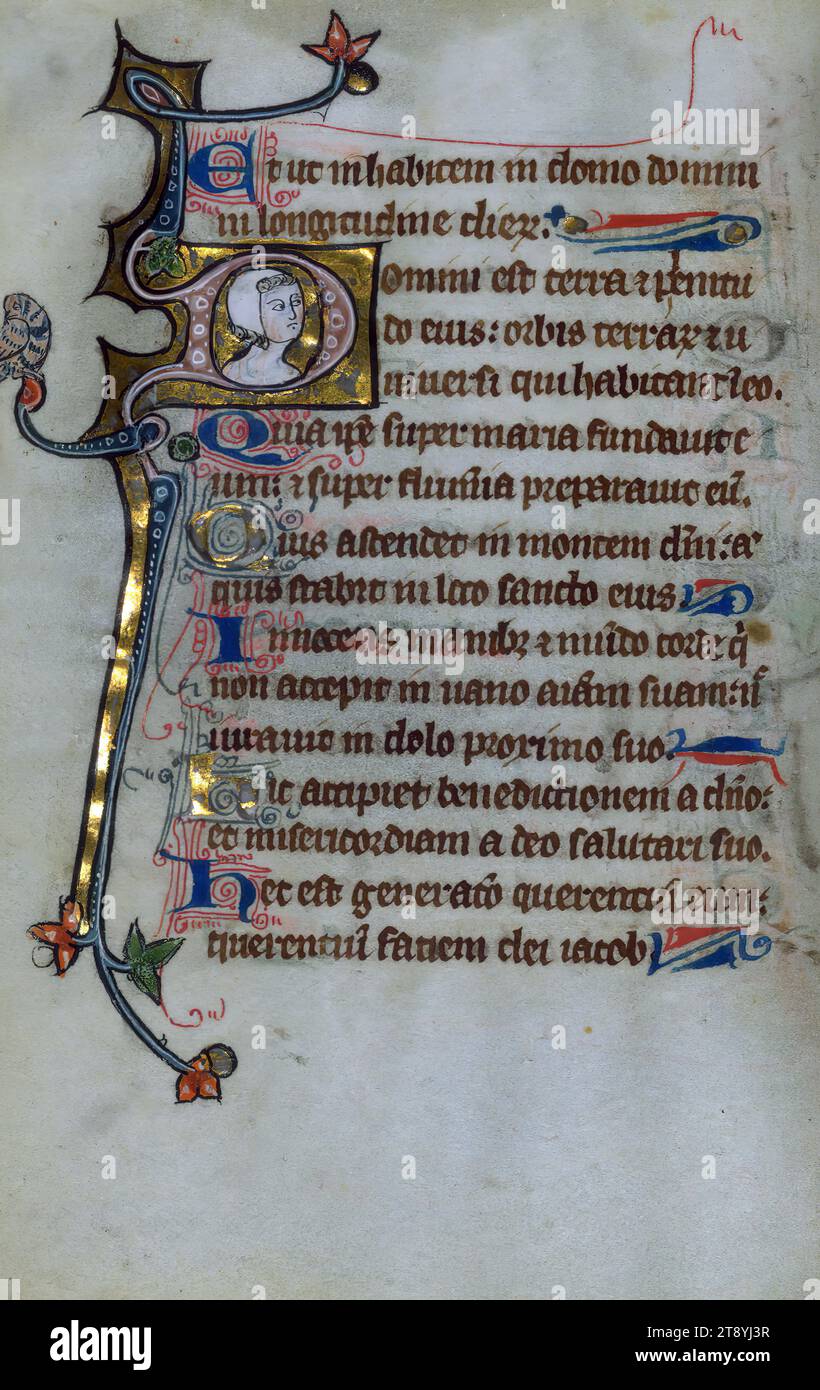 Et ut inhabitem in domo domini
in longitudine dierꝝ.
Domini est terra ⁊ plenitu
do eius: orbis terrarꝝ ⁊ u
niuersi qui habitant in eo.
Quia ip̄e super maria fundauit e
um: ⁊ super flumina preparauit eū.
Quis ascendet in montem dn̄i: a̅
quis stabit in loco sancto eius
Innocens manibꝫ ⁊ mundo corde q̄
non accepit in uano aīam suam: n̄
iurauit in dolo proximo suo.
Hic accipiet benedictionem a dn̄o:
et misericordiam a deo salutari suo.
Hec est generatō querentiū dnm:
querentiū faciem dei iacob
alamy
Image ID: 2T8YJ3R
www.alamy.com